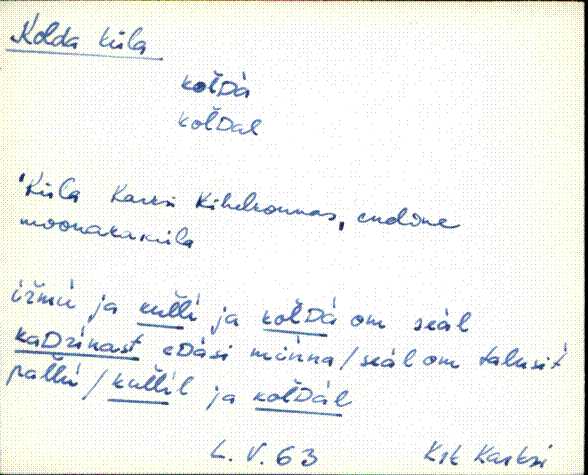 Kolda küla
koľDà
koľDal
'Küla Karksi kihelkonnas, endine
moonakaküla
ižmù ja kuľľi ja koľDà om seäl
kaDŕinast eDäsi minna / seäl om talusit
palľu / kuľľil ja koľDàl
L. V. 63 Krk Karksi